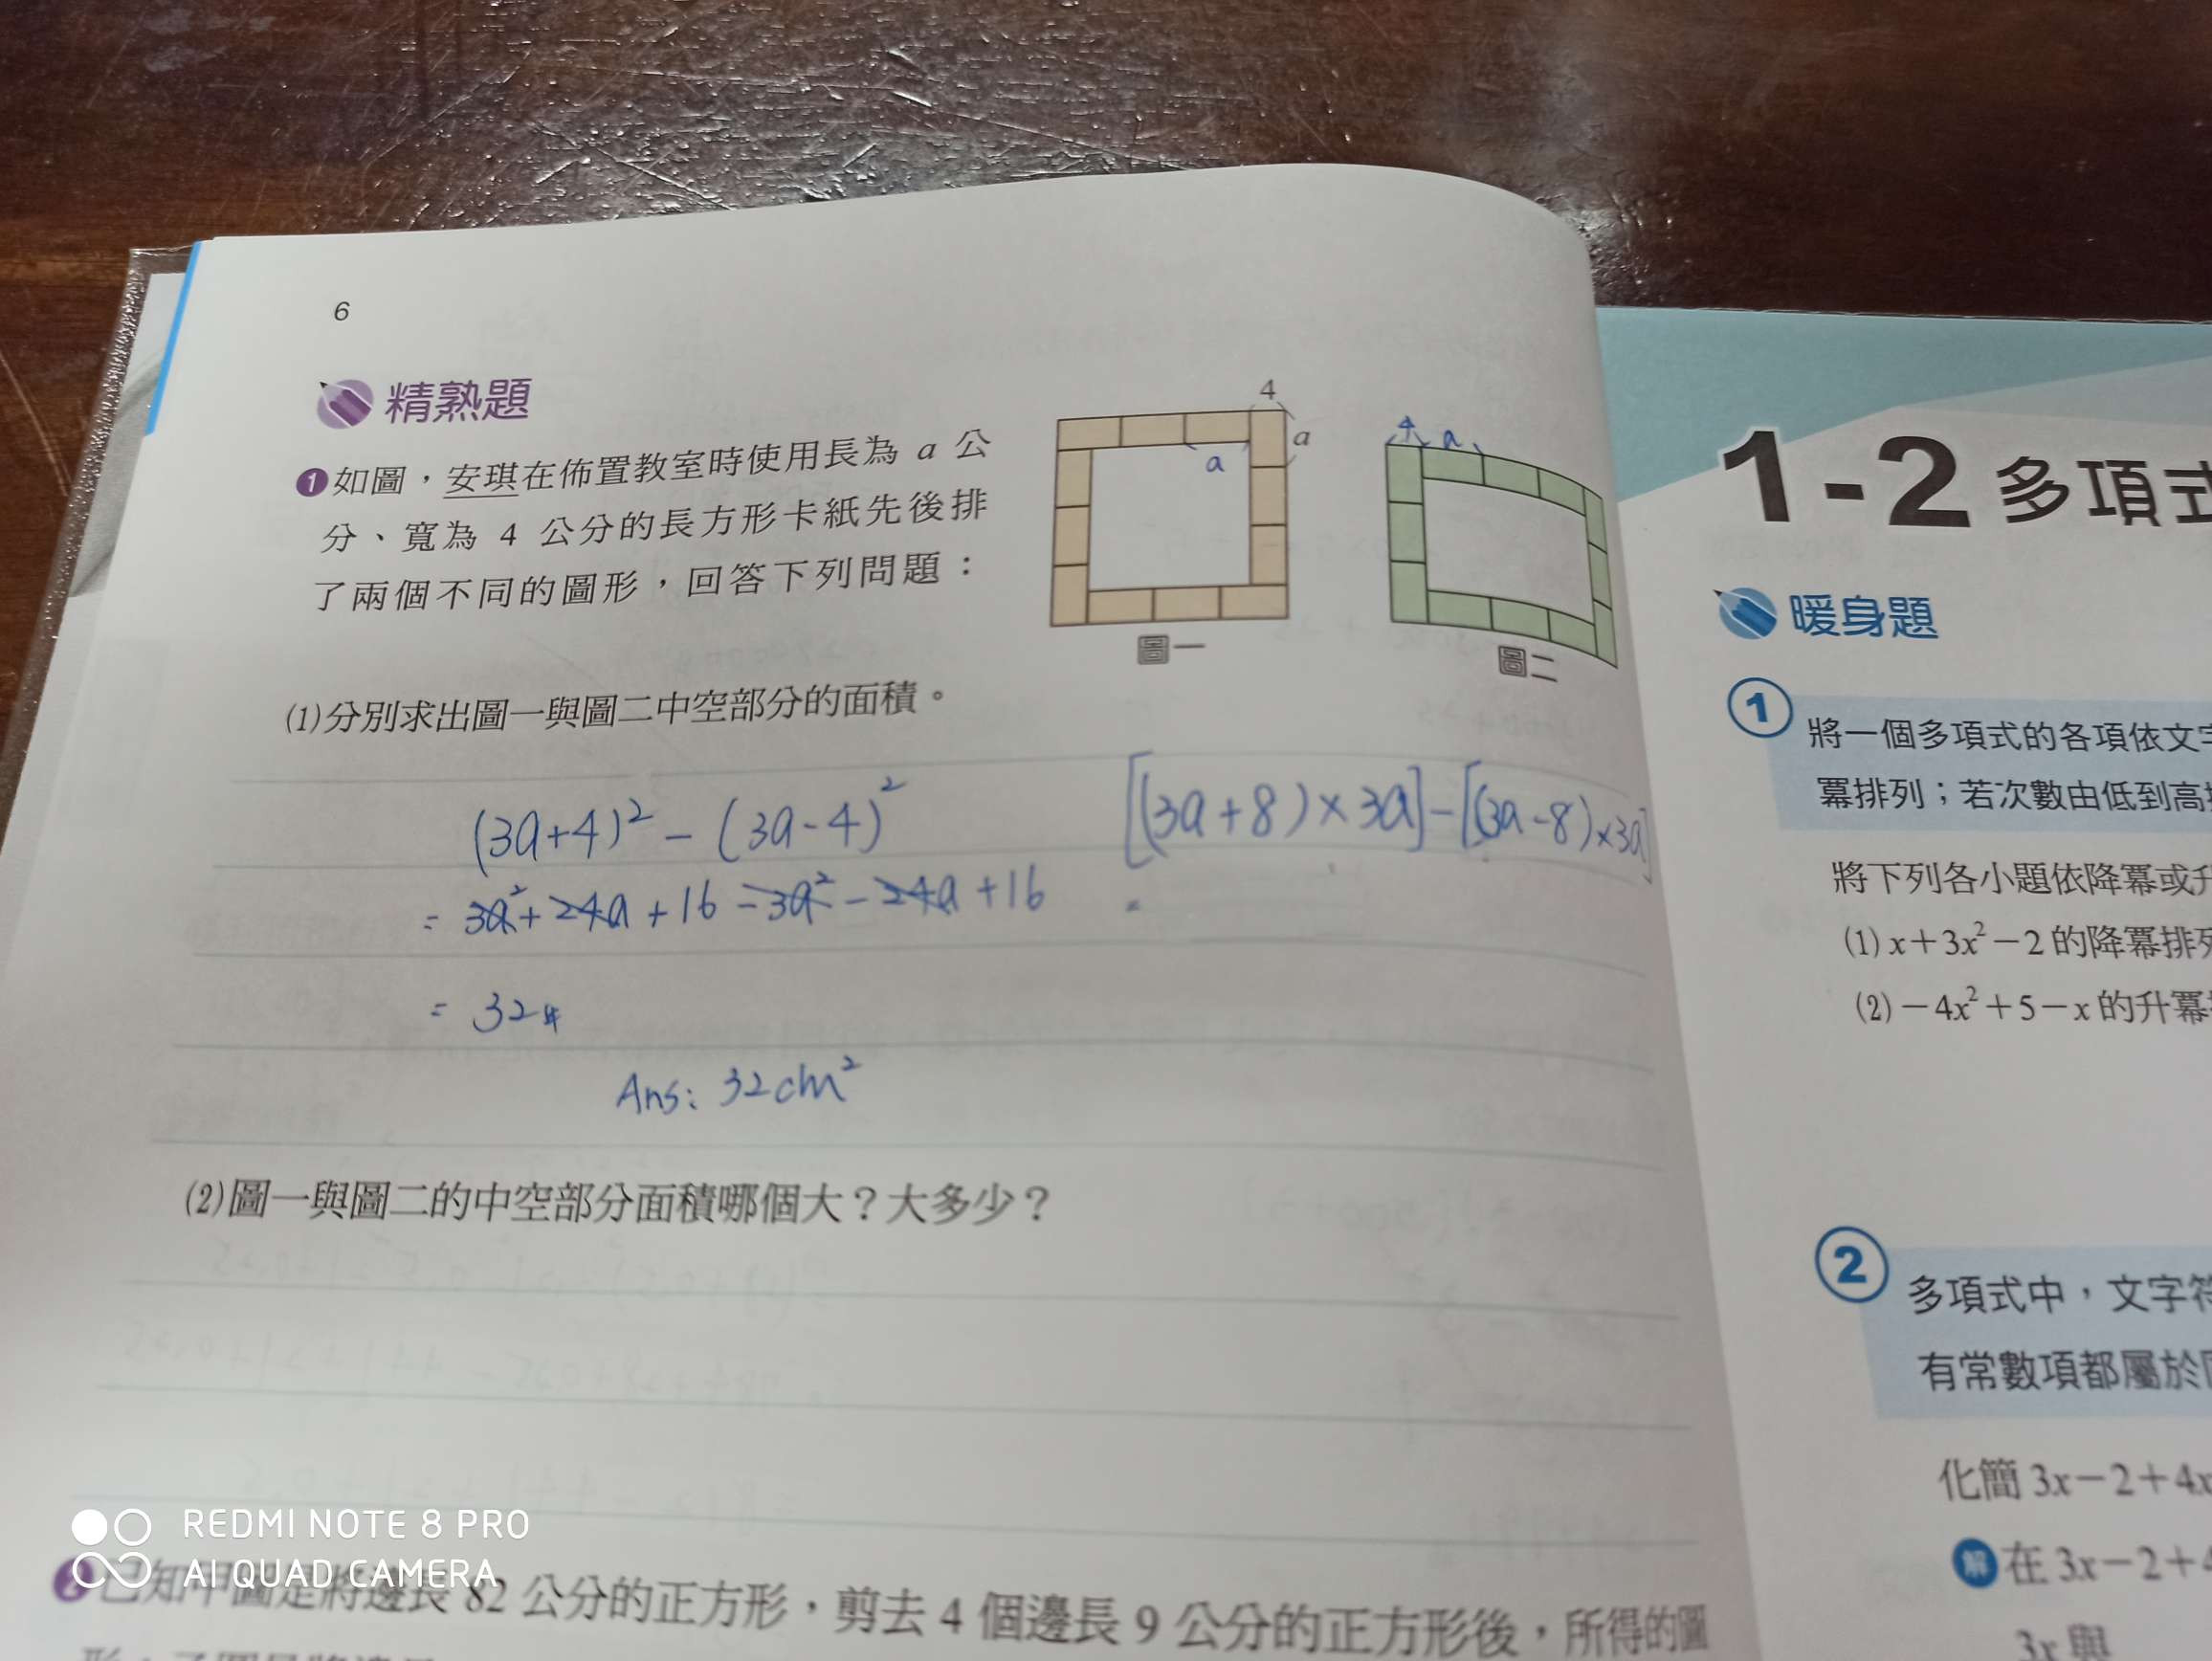 6
精熟題
❶如圖，安琪在佈置教室時使用長為 a 公
分、寬為 4 公分的長方形卡紙先後排
了兩個不同的圖形，回答下列問題：
4
a
a
圖一
4 a
圖二
(1)分別求出圖一與圖二中空部分的面積。
(3a+4)² - (3a-4)²
= 3a²+24a+16-3a²-24a+16
= 32#
Ans: 32cm²
[(3a+8)×3a]-[(3a-8)×3a]
=
(2)圖一與圖二的中空部分面積哪個大？大多少？
❷已知甲圖是將邊長 82 公分的正方形，剪去 4 個邊長 9 公分的正方形後，所得的圖
1-2 多項式
暖身題
① 將一個多項式的各項依文字
冪排列；若次數由低到高
將下列各小題依降冪或升
(1) x＋3x²－2 的降冪排列
(2)－4x²＋5－x 的升冪
② 多項式中，文字符
有常數項都屬於
化簡 3x－2＋4x
解 在 3x－2＋4
3x 與
REDMI NOTE 8 PRO
AI QUAD CAMERA